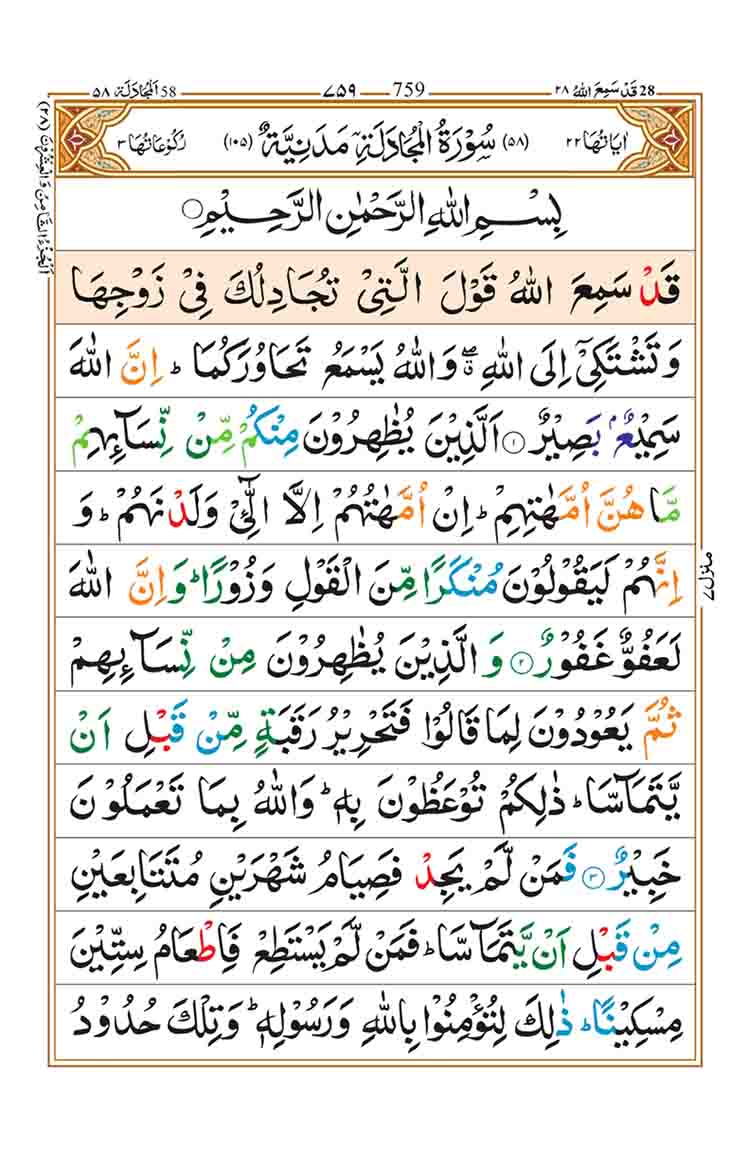 28 قَدْ سَمِعَ اللهُ ٢٨
759 ٧٥٩
58 اَلْمُجَادَلَة ٥٨
اٰيَاتُهَا ٢٢
(٥٨) سُوْرَةُ الْمُجَادَلَةِ مَدَنِيَّةٌ (١٠٥)
رُكُوْعَاتُهَا ٣
بِسْمِ اللهِ الرَّحْمٰنِ الرَّحِيْمِ
قَدْ سَمِعَ اللهُ قَوْلَ الَّتِيْ تُجَادِلُكَ فِيْ زَوْجِهَا
وَتَشْتَكِيْۤ اِلَى اللهِ ۖۗ وَاللهُ يَسْمَعُ تَحَاوُرَكُمَا ؕ اِنَّ اللهَ
سَمِيْعٌۢ بَصِيْرٌ ۝١ اَلَّذِيْنَ يُظٰهِرُوْنَ مِنْكُمْ مِّنْ نِّسَآئِهِمْ
مَّا هُنَّ اُمَّهٰتِهِمْ ؕ اِنْ اُمَّهٰتُهُمْ اِلَّا الّٰٓـِٔيْ وَلَدْنَهُمْ ؕ وَ
اِنَّهُمْ لَيَقُوْلُوْنَ مُنْكَرًا مِّنَ الْقَوْلِ وَزُوْرًا ؕ وَاِنَّ اللهَ
لَعَفُوٌّ غَفُوْرٌ ۝٢ وَالَّذِيْنَ يُظٰهِرُوْنَ مِنْ نِّسَآئِهِمْ
ثُمَّ يَعُوْدُوْنَ لِمَا قَالُوْا فَتَحْرِيْرُ رَقَبَةٍ مِّنْ قَبْلِ اَنْ
يَّتَمَآسَّا ؕ ذٰلِكُمْ تُوْعَظُوْنَ بِهٖ ؕ وَاللهُ بِمَا تَعْمَلُوْنَ
خَبِيْرٌ ۝٣ فَمَنْ لَّمْ يَجِدْ فَصِيَامُ شَهْرَيْنِ مُتَتَابِعَيْنِ
مِنْ قَبْلِ اَنْ يَّتَمَآسَّا ؕ فَمَنْ لَّمْ يَسْتَطِعْ فَاِطْعَامُ سِتِّيْنَ
مِسْكِيْنًا ؕ ذٰلِكَ لِتُؤْمِنُوْا بِاللهِ وَرَسُوْلِهٖ ؕ وَتِلْكَ حُدُوْدُ
اَلْجُزْءُ الثَّامِنُ وَالْعِشْرُوْنَ (٢٨)
منزل ٧